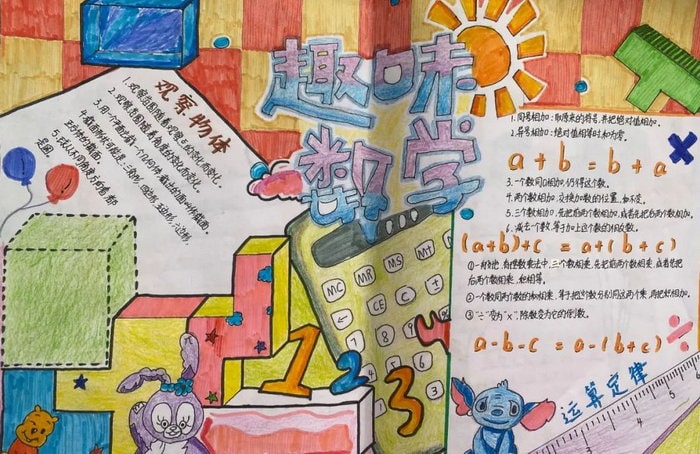 趣味
数学
观察物体
1. 观察范围随着观察点的变化而变化。
2. 观察范围随着角度的变化而改变。
3. 用一个平面去截一个几何体,截出的面叫作截面。
4. 截面所有可能是:三角形、四边形、五边形、六边形。
正方体的截面。
5. 球从不同角度方向看都
是圆。
1. 同号相加:取原来的符号,并把绝对值相加。
2. 异号相加:绝对值相等时和为零。
a+b=b+a
3. 一个数同0相加,仍得这个数。
4. 两个数相加,交换加数的位置,和不变。
5. 三个数相加,先把前两个数相加,或者先把后两个数相加。
6. 减去个数,等于加上这个数的相反数。
(a+b)+c = a+(b+c)
①一般地,有理数乘法中,三个数相乘,先把前两个数相乘,或者先把
后两个数相乘,积相等。
②一个数同两个数的和相乘,等于把这个数分别同这两个数相乘,再把积相加。
③"÷"变为"×",除数变为它的倒数。
a-b-c = a-(b+c)
运算定律
MC MR MS M+
CE C ±
1 2 3